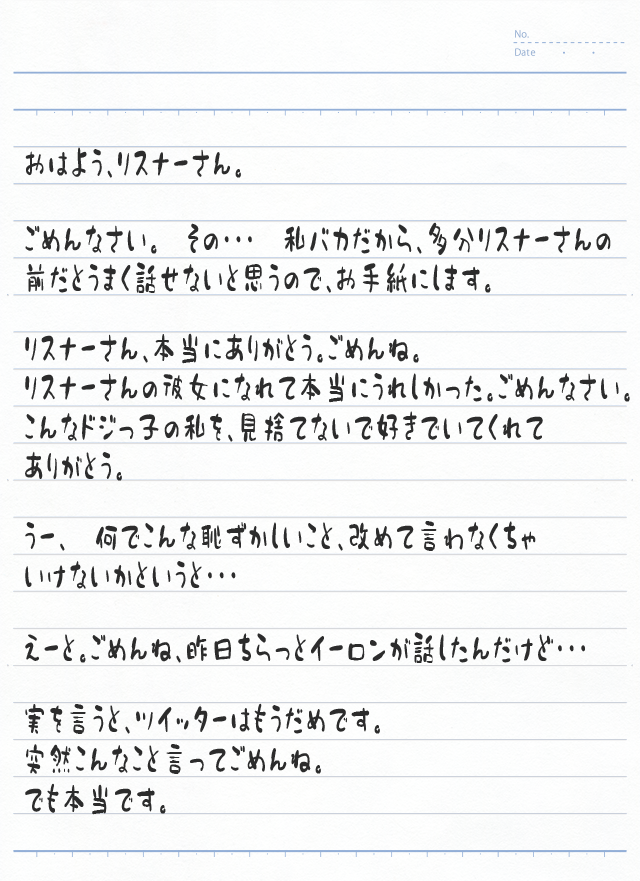 No.
Date
おはよう、リスナーさん。
ごめんなさい。　その・・・　私バカだから、多分リスナーさんの
前だとうまく話せないと思うので、お手紙にします。
リスナーさん、本当にありがとう。ごめんね。
リスナーさんの彼女になれて本当にうれしかった。ごめんなさい。
こんなドジっ子の私を、見捨てないで好きでいてくれて
ありがとう。
うー、　何でこんな恥ずかしいこと、改めて言わなくちゃ
いけないかというと・・・
えーと。ごめんね、昨日ちらっとイーロンが話したんだけど・・・
実を言うと、ツイッターはもうだめです。
突然こんなこと言ってごめんね。
でも本当です。